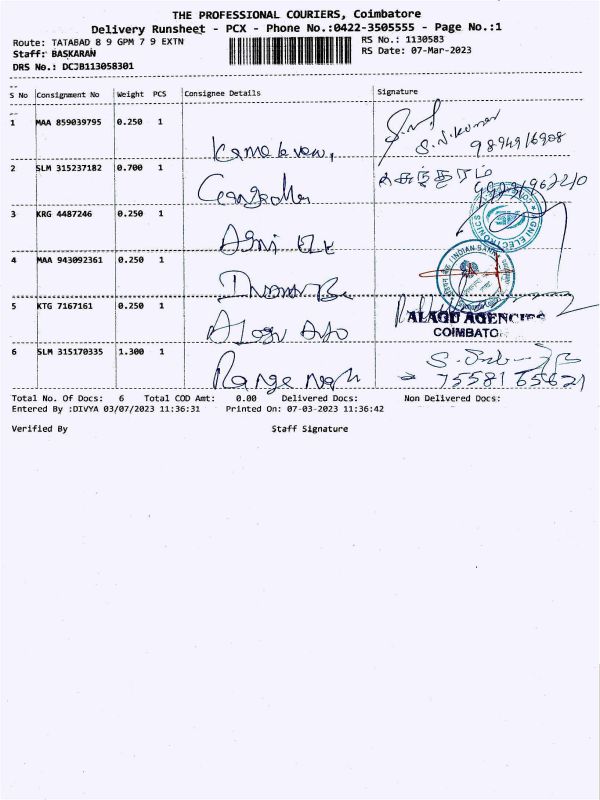 THE PROFESSIONAL COURIERS, Coimbatore
Delivery Runsheet - PCX - Phone No.:0422-3505555 - Page No.:1
Route: TATABAD 8 9 GPM 7 9 EXTN
RS No.: 1130583
Staff: BASKARAN
RS Date: 07-Mar-2023
DRS No.: DCJB113058301
S No Consignment No Weight PCS Consignee Details Signature
1 MAA 859039795 0.250 1
S.N.Kumar
9894916908
2 SLM 315237182 0.700 1
3 KRG 4487246 0.250 1 Agni
AGNI ELECTRONICS
4 MAA 943092361 0.250 1
INDIAN BANK
5 KTG 7167161 0.250 1
ALAGU AGENCIES
COIMBATO
6 SLM 315170335 1.300 1
7558165621
Total No. Of Docs: 6 Total COD Amt: 0.00 Delivered Docs: Non Delivered Docs:
Entered By :DIVYA 03/07/2023 11:36:31 Printed On: 07-03-2023 11:36:42
Verified By Staff Signature